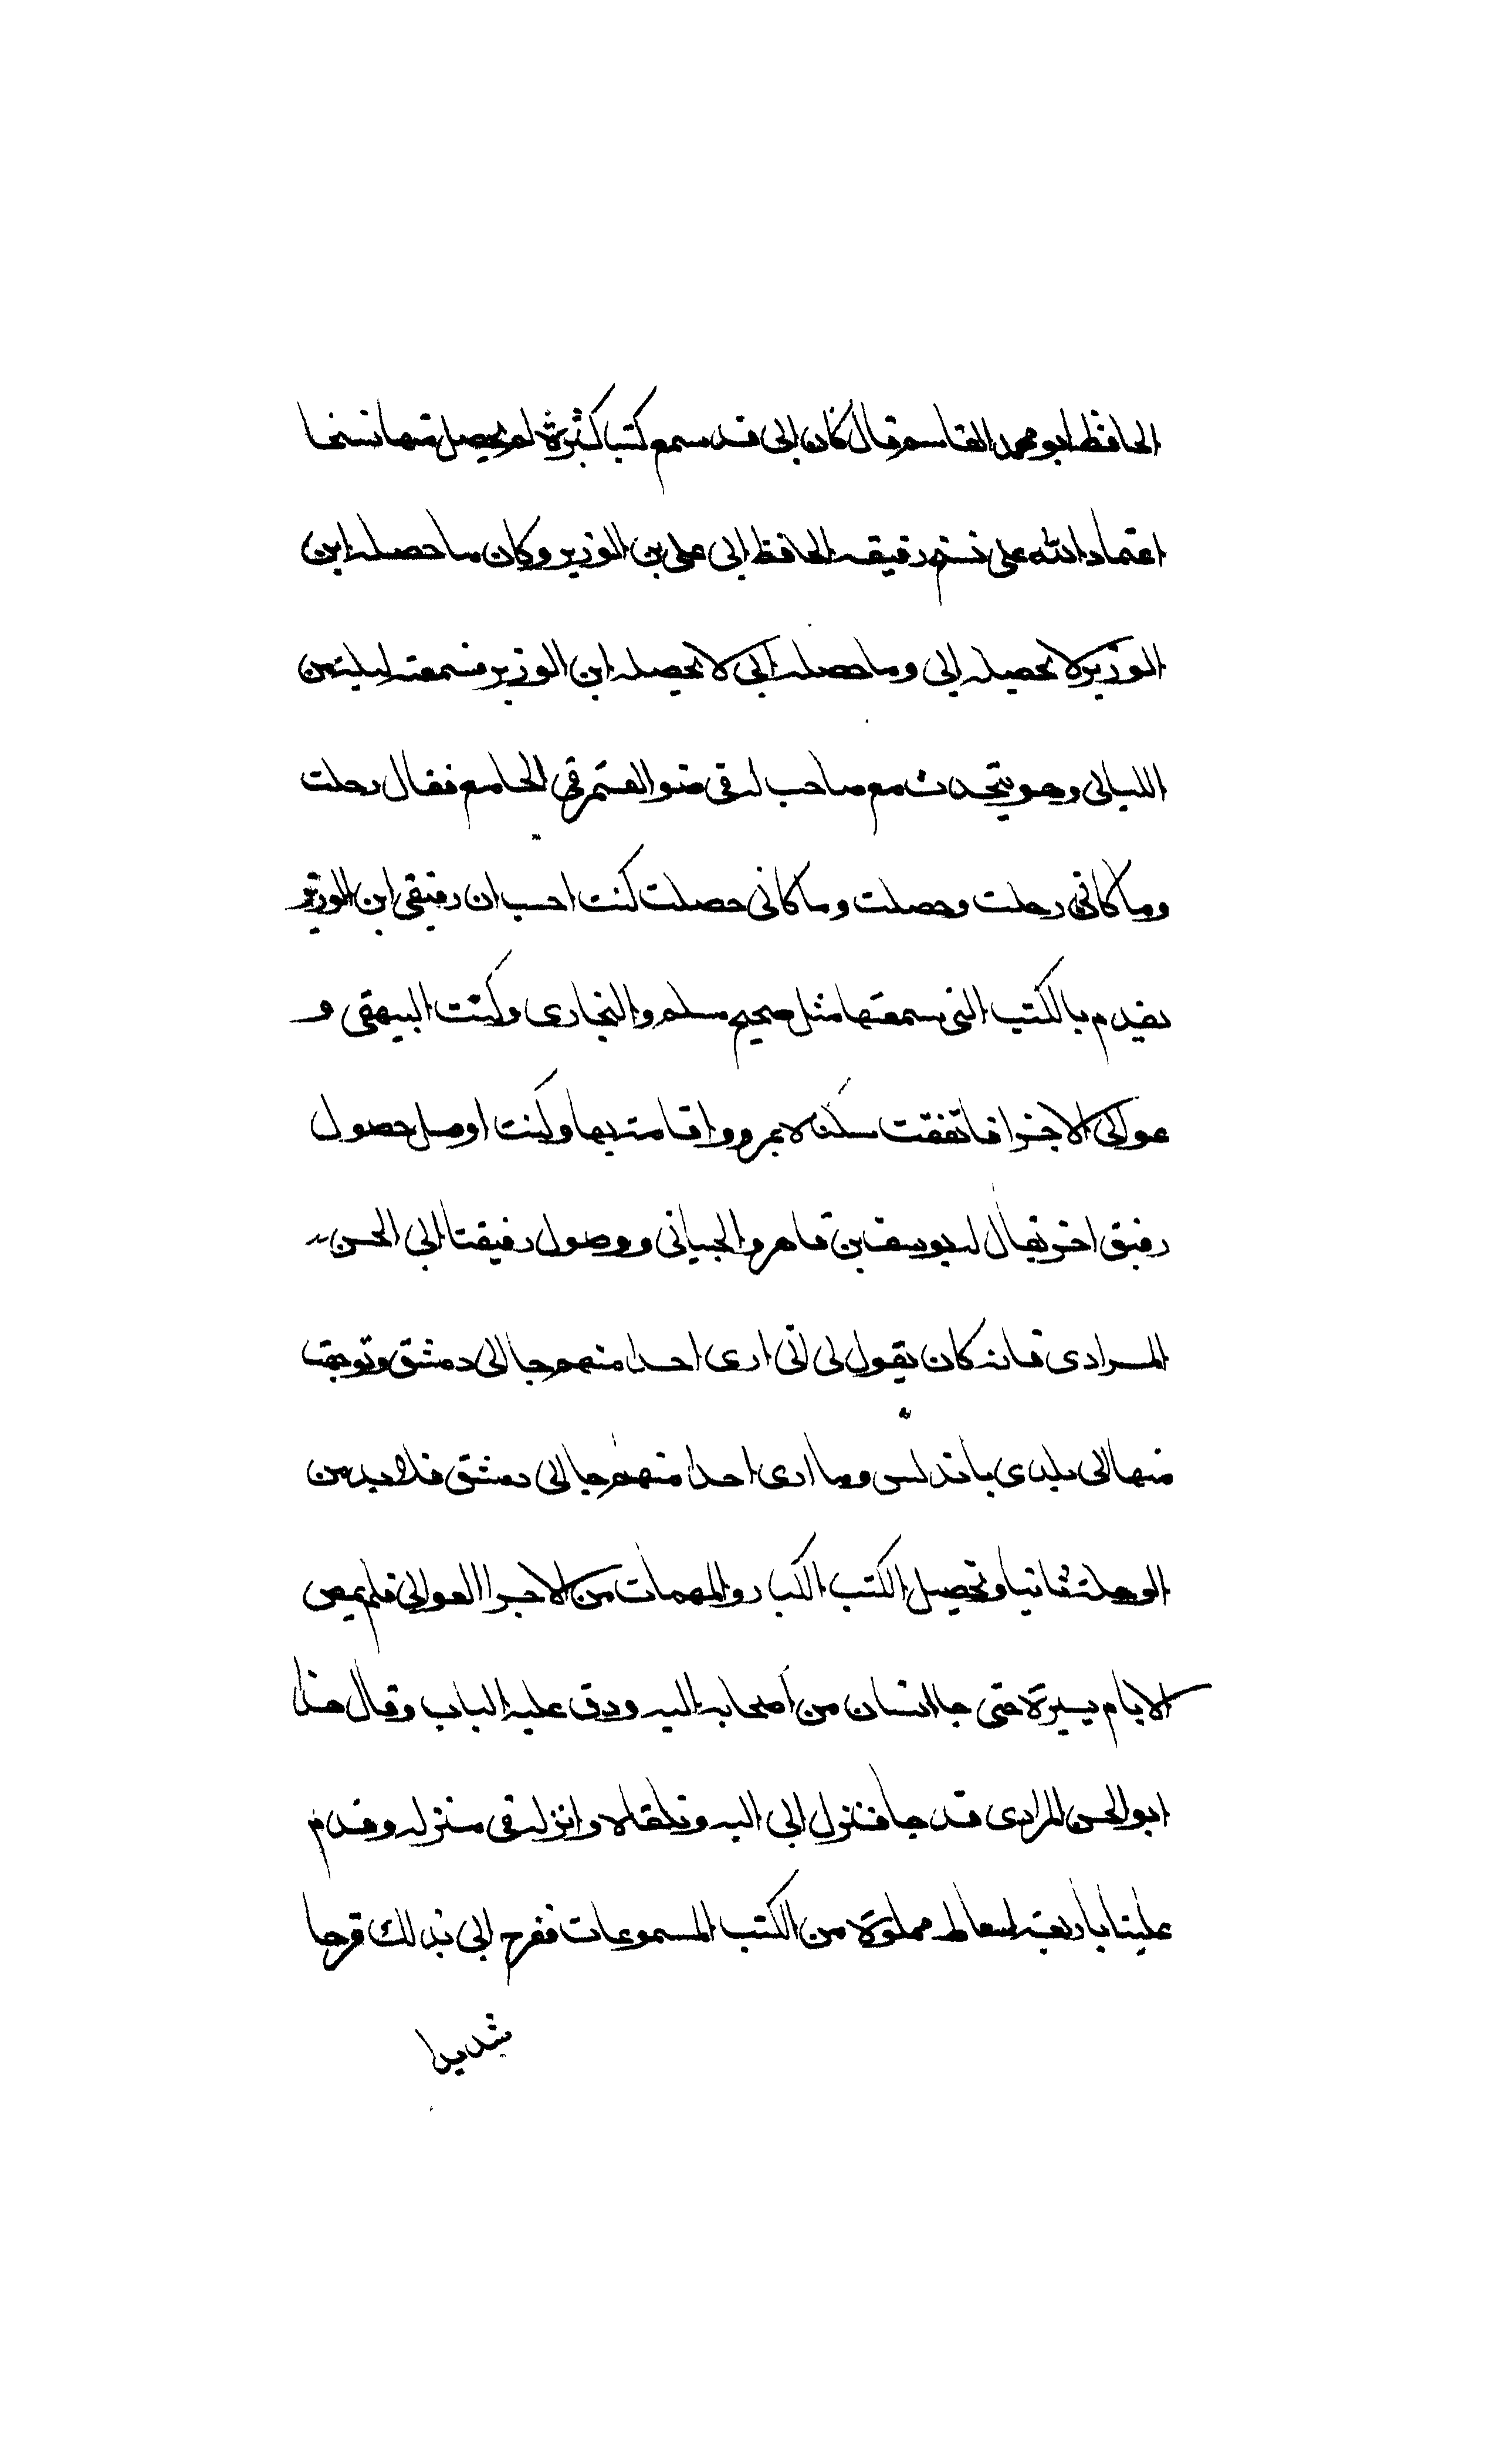 الحافظ ابو محمد القاسم قال كان ابى قد سمع كتبا كثيرة لم يحصل منها نسخا
اعتمادا لله على نسخ رفيقه الحافظ ابى على بن الوزير وكان ما حصله ابن
الوزير لا يحصله ابى وما حصله ابى لا يحصله ابن الوزير فسمعته ليلة من
الليالى وهو يتحدث مع صاحب له فى ضو القمر فى الجامع فقال رحلت
وما كانى رحلت وحصلت وما كانى حصلت كنت احسب ان رفيقى ابن الوزير
يقدم بالكتب التى سمعتها مثل صحيح مسلم والبخارى وكتب البيهقى و
عوالى الاجزا فاتفقت سكناه بمرو واقامته بها وكنت اومل حصول
رفيق اخر يقال له يوسف بن فاهرو الجيانى ووصول رفيقنا ابى الحسن
المرادى فانه كان يقول لى انى ارى احدا منهم جا الى دمشق وتوجهت
منها الى بلدى باندلس وما ارى احدا منهم جا الى دمشق فلا بد من
الوحلة ثانيا وتحصيل الكتب الكبار والمهمات من الاجزا العوالى فلم يمض
الا يام يسيرة حتى جا انسان من اصحابه اليه ودق عليه الباب وقال هذا
ابو الحسن المرادى قد جا فنزل ابى اليه وتلقاه وانزله فى منزله وقدم
علينا باربعة اسفاط مملوة من الكتب المسموعات ففرح ابى بذلك فرحا
شديدا